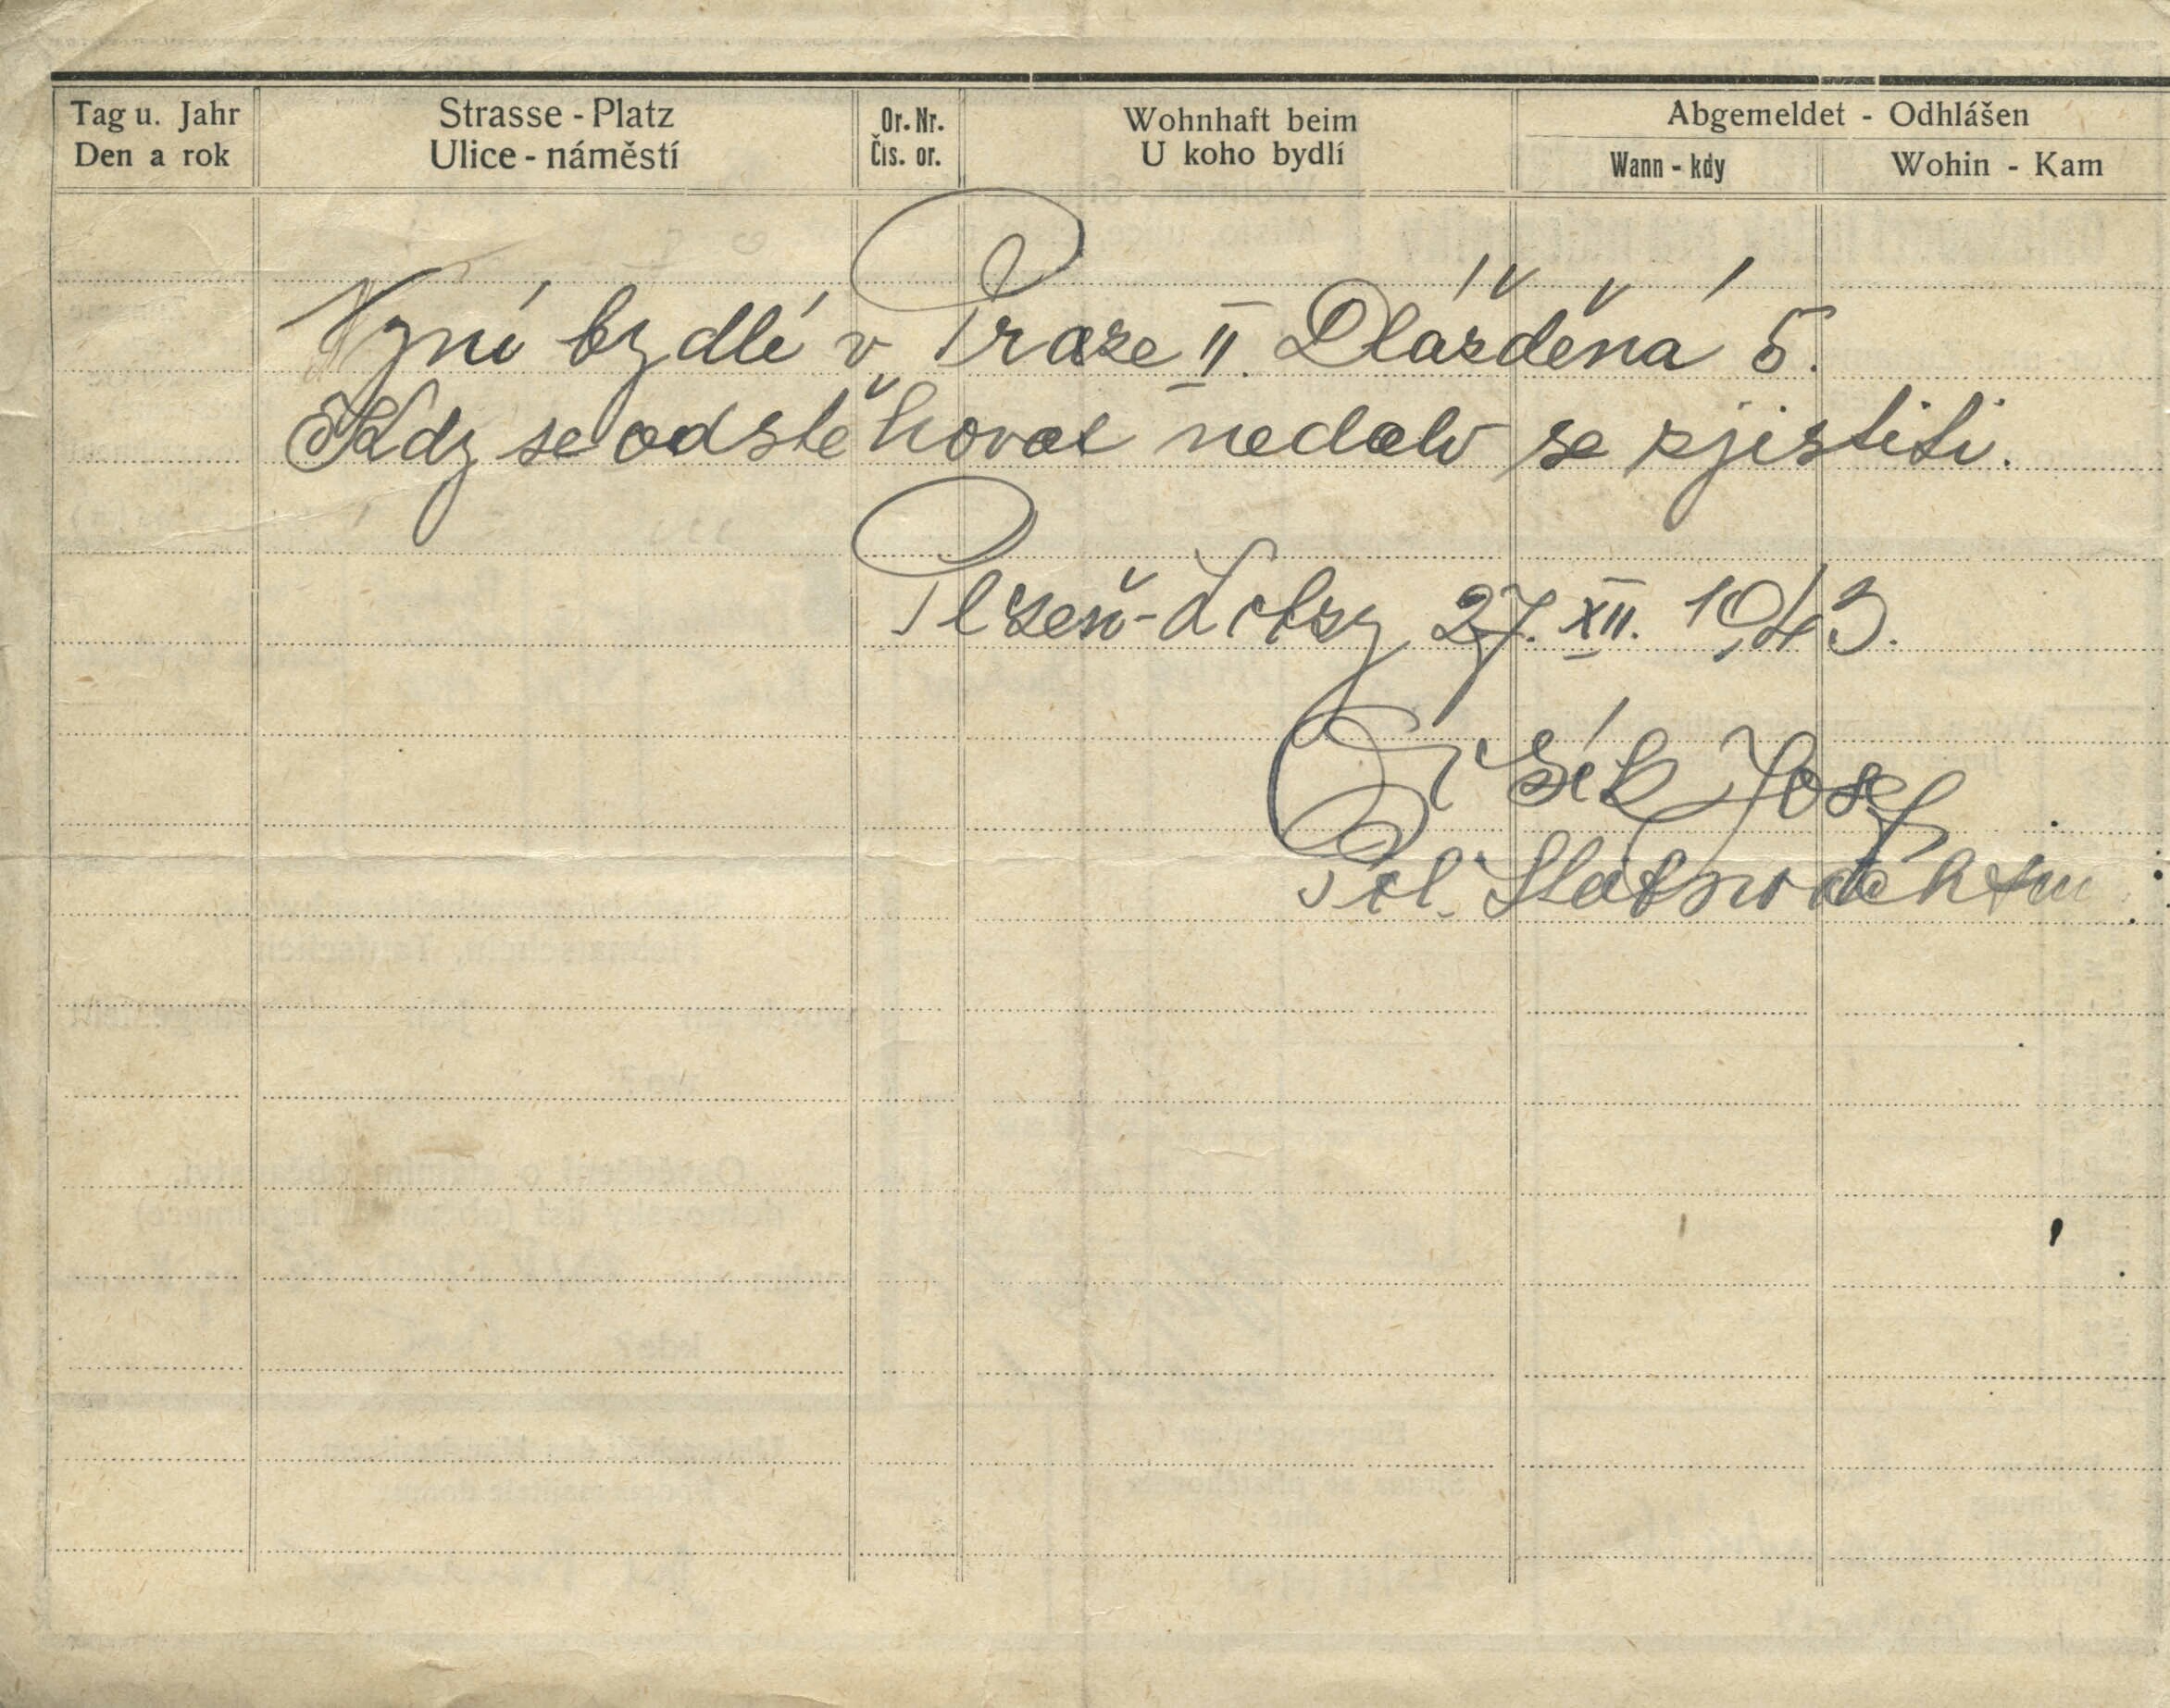 Tag u. Jahr
Den a rok
Strasse - Platz
Ulice - náměstí
Or. Nr.
Čis. or.
Wohnhaft beim
U koho bydlí
Abgemeldet - Odhlášen
Wann - kdy
Wohin - Kam
Nyní bydlí v Praze II. Dlážděná 5.
Kdy se odstěhoval nedalo se zjistiti.
Plzeň-Lobzy 27. XII. 1943.
Josef
Pol.